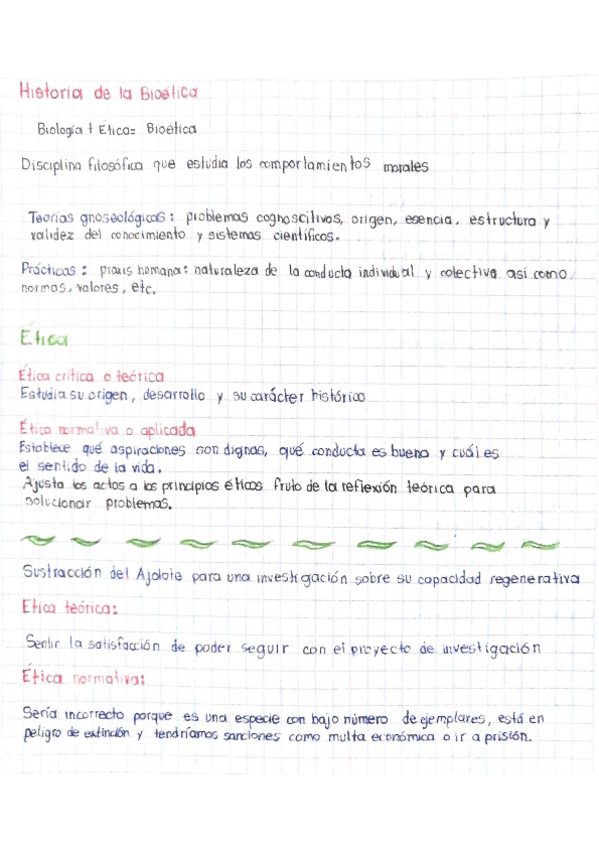 Historia de la Bioética
Biología + Ética= Bioética
Disciplina filosófica que estudia los comportamientos morales
Teorías gnoseológicas: problemas cognoscitivos, origen, esencia, estructura y
validez del conocimiento y sistemas científicos.
Prácticas: praxis humana: naturaleza de la conducta individual y colectiva así como
normas, valores, etc.
Ética
Ética crítica o teórica
Estudia su origen, desarrollo y su carácter histórico
Ética normativa o aplicada
Establece qué aspiraciones son dignas, qué conducta es buena y cuál es
el sentido de la vida.
Ajusta los actos a los principios éticos fruto de la reflexión teórica para
solucionar problemas.
Sustracción del Ajolote para una investigación sobre su capacidad regenerativa
Etica teórica:
Sentir la satisfacción de poder seguir con el proyecto de investigación
Ética normativa:
Sería incorrecto porque es una especie con bajo número de ejemplares, está en
peligro de extinción y tendríamos sanciones como multa económica o ir a prisión.